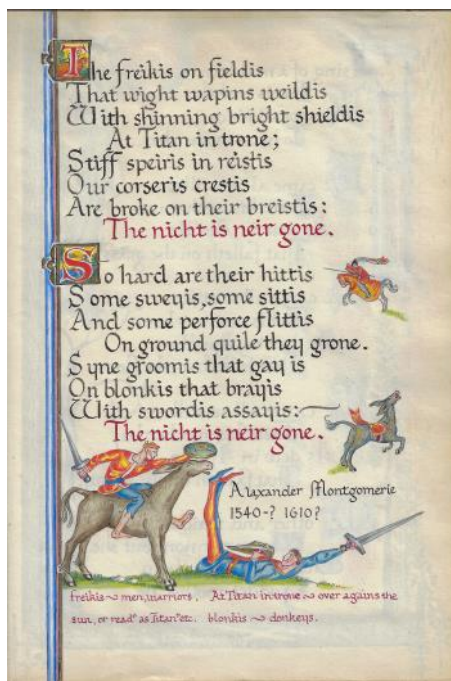 The freikis on fieldis
That wight wapins weildis
With shinning bright shieldis
At Titan in trone;
Stiff speiris in reistis
Our corseris crestis
Are broke on their breistis:
The nicht is neir gone.
So hard are their hittis
Some sweyis, some sittis
And some perforce flittis
On ground quile they grone.
Syne groomis that gay is
On blonkis that brayis
With swordis assayis:
The nicht is neir gone.
Alexander Montgomerie
1540-? 1610?
freikis ~ men, warriors. At Titan in trone ~ over agains the
sun, or read as Titan etc. blonkis ~ donkeys.